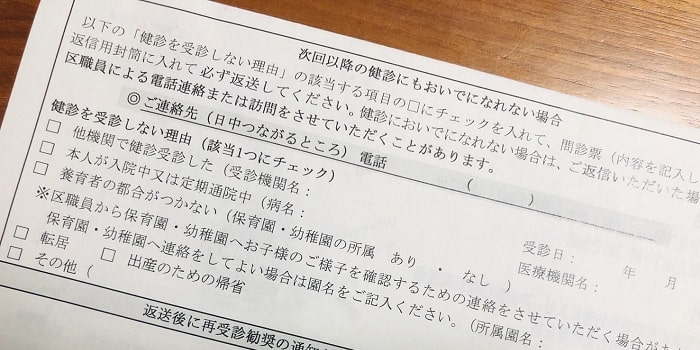 次回以降の健診にもおいでになれない場合
以下の「健診を受診しない理由」の該当する項目の□にチェックを入れて、問診票（内容を記入し
返信用封筒に入れて必ず返送してください。健診においでになれない場合は、ご返信いただいた場
区職員による電話連絡または訪問をさせていただくことがあります。
◎ご連絡先（日中つながるところ）電話　　　（　　　）
健診を受診しない理由（該当1つにチェック）
□ 他機関で健診受診した（受診機関名：　　　受診日：　　年　　月
□ 本人が入院中又は定期通院中（病名：　　　医療機関名：
□ 養育者の都合がつかない（保育園・幼稚園の所属　あり　・　なし）
※区職員から保育園・幼稚園へお子様のご様子を確認するための連絡をさせていただく場合があ
保育園・幼稚園へ連絡をしてよい場合は園名をご記入ください。（所属園名：
□ 転居　　□ 出産のための帰省
□ その他（
返送後に再受診勧奨の通知